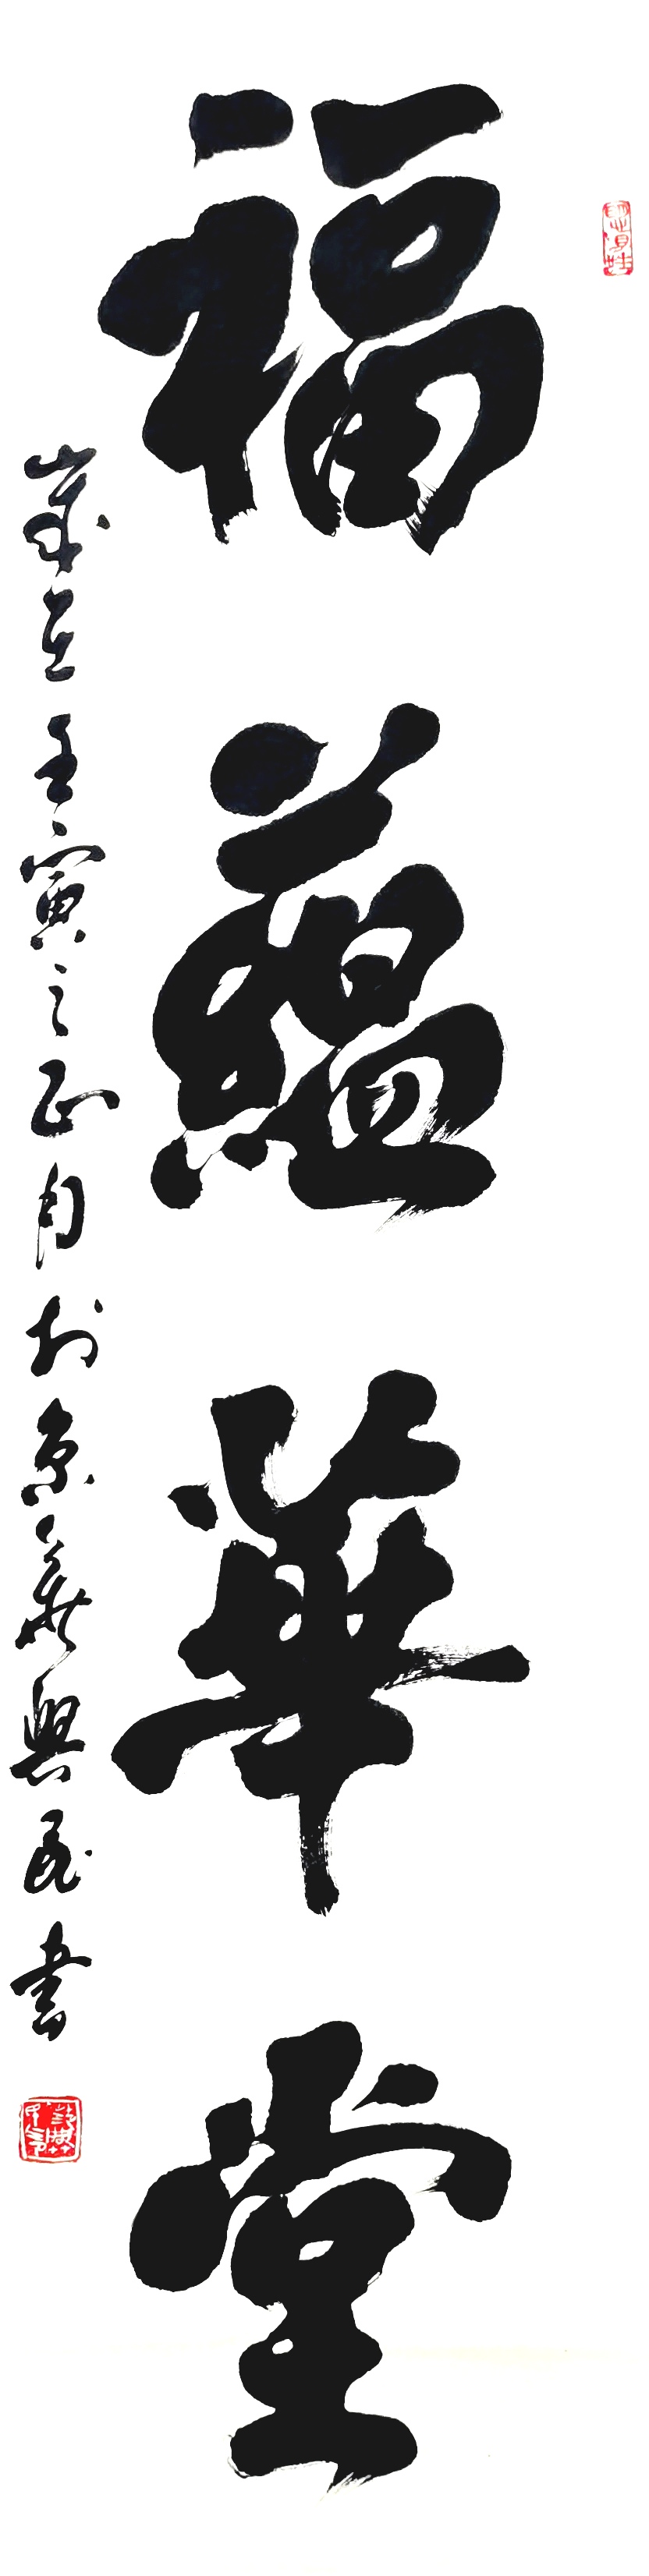 福蘊華堂
歲在壬寅之正月於京義興民書